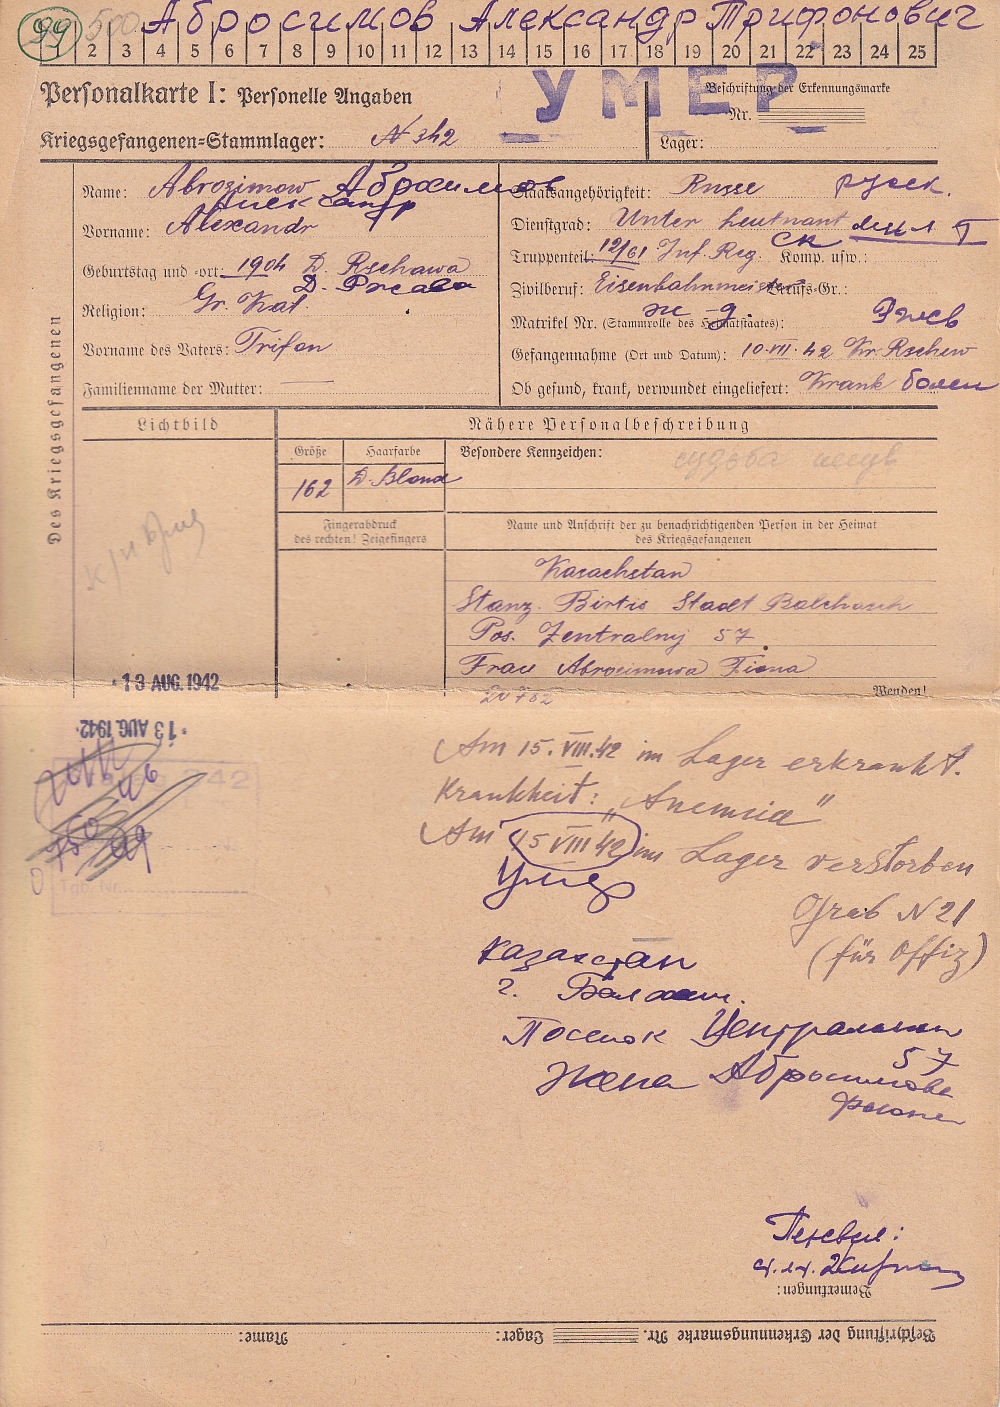 99 500 Абросимов Александр Трифонович
2 3 4 5 6 7 8 9 10 11 12 13 14 15 16 17 18 19 20 21 22 23 24 25
УМЕР
Personalkarte I: Personelle Angaben
Beschriftung der Erkennungsmarke
Nr.
Kriegsgefangenen=Stammlager: N 342
Lager:
Des Kriegsgefangenen
Name: Abrosimow Абросимов
Александр
Vorname: Alexandr
Geburtstag und =ort: 1904 D. Rschawa
Д. Ржава
Religion: Gr. Kat.
Vorname des Vaters: Trifon
Familienname der Mutter: —
Staatsangehörigkeit: Russe русск.
Dienstgrad: Unter Leutnant мл. л-т
Truppenteil: 12/61 Inf. Reg. СК Komp. usw.:
Zivilberuf: Eisenbahnmeister Berufs-Gr.:
ж-д.
Matrikel Nr. (Stammrolle des Heimatstaates): Ржев
Gefangennahme (Ort und Datum): 10.VII.42 Kr. Rschew
Ob gesund, krank, verwundet eingeliefert: Krank болен
Lichtbild
Nähere Personalbeschreibung
Größe Haarfarbe Besondere Kennzeichen:
162 D. Blond
Fingerabdruck
des rechten! Zeigefingers
Name und Anschrift der zu benachrichtigenden Person in der Heimat
des Kriegsgefangenen
Kasachstan
Stanz. Birtis Stadt Balchasch
Pos. Zentralnij 57
Frau Abrosimowa Fiona
Wenden!
13 AUG. 1942
13 AUG. 1942
Tgb. Nr.
Am 15. VIII.42 im Lager erkrankt.
Krankheit: „Anemia"
Am 15 VIII 42 im Lager verstorben
Умер
Grab N 21
(für Offiz)
Казахстан
г. Балхаш.
Поселок Центральный
57
Жена Абросимова
Фиона
Перевел:
Bemerkungen:
Beschriftung der Erkennungsmarke Nr. Lager: Name: